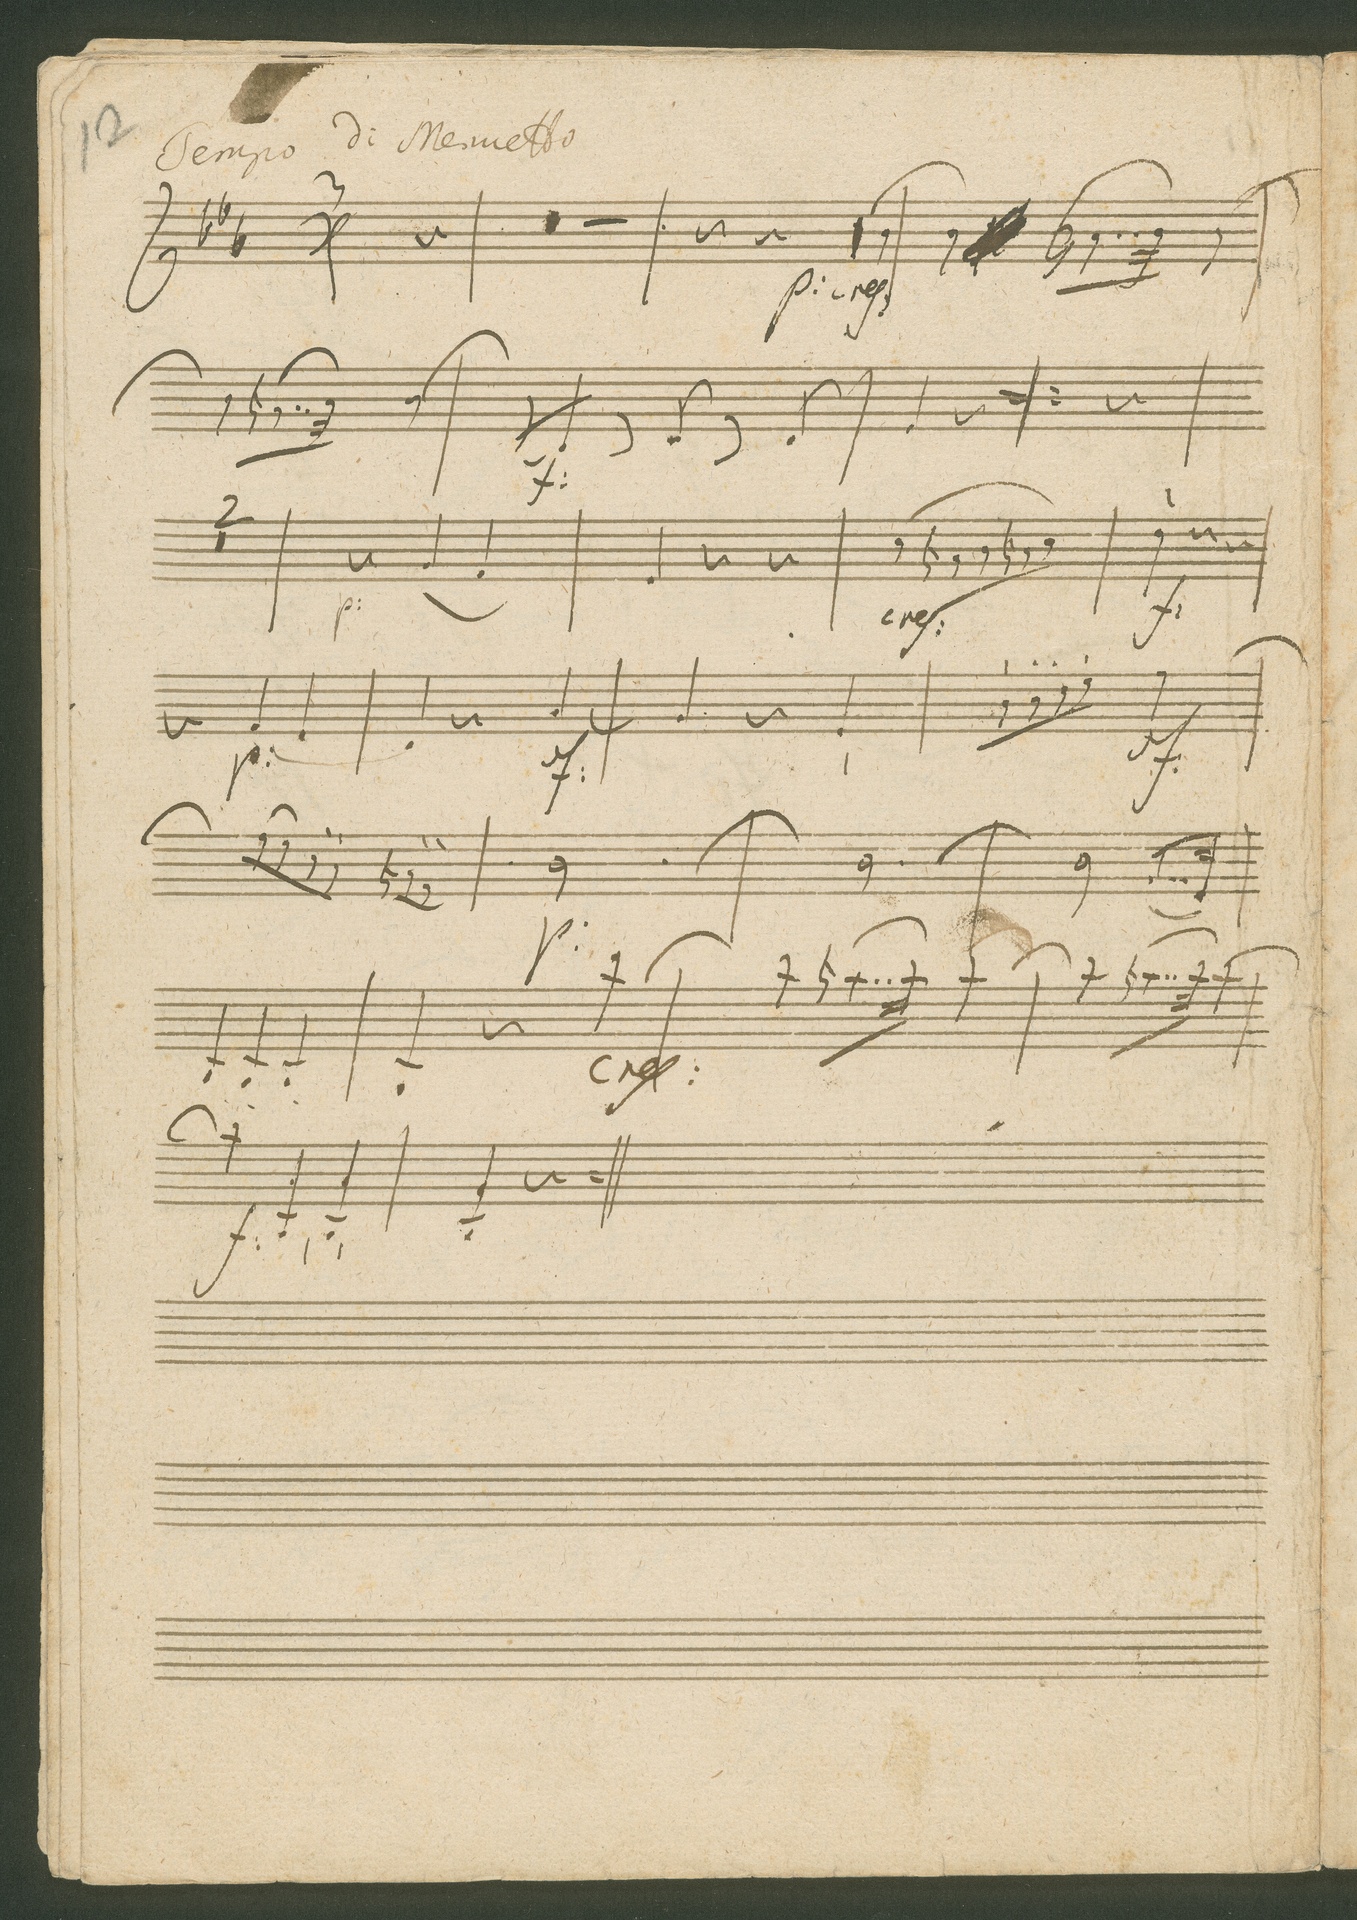 12
Tempo di Menuetto
3
p: cres:
f:
2
p: cres: f:
p: sf: sf:
p:
cres:
f: